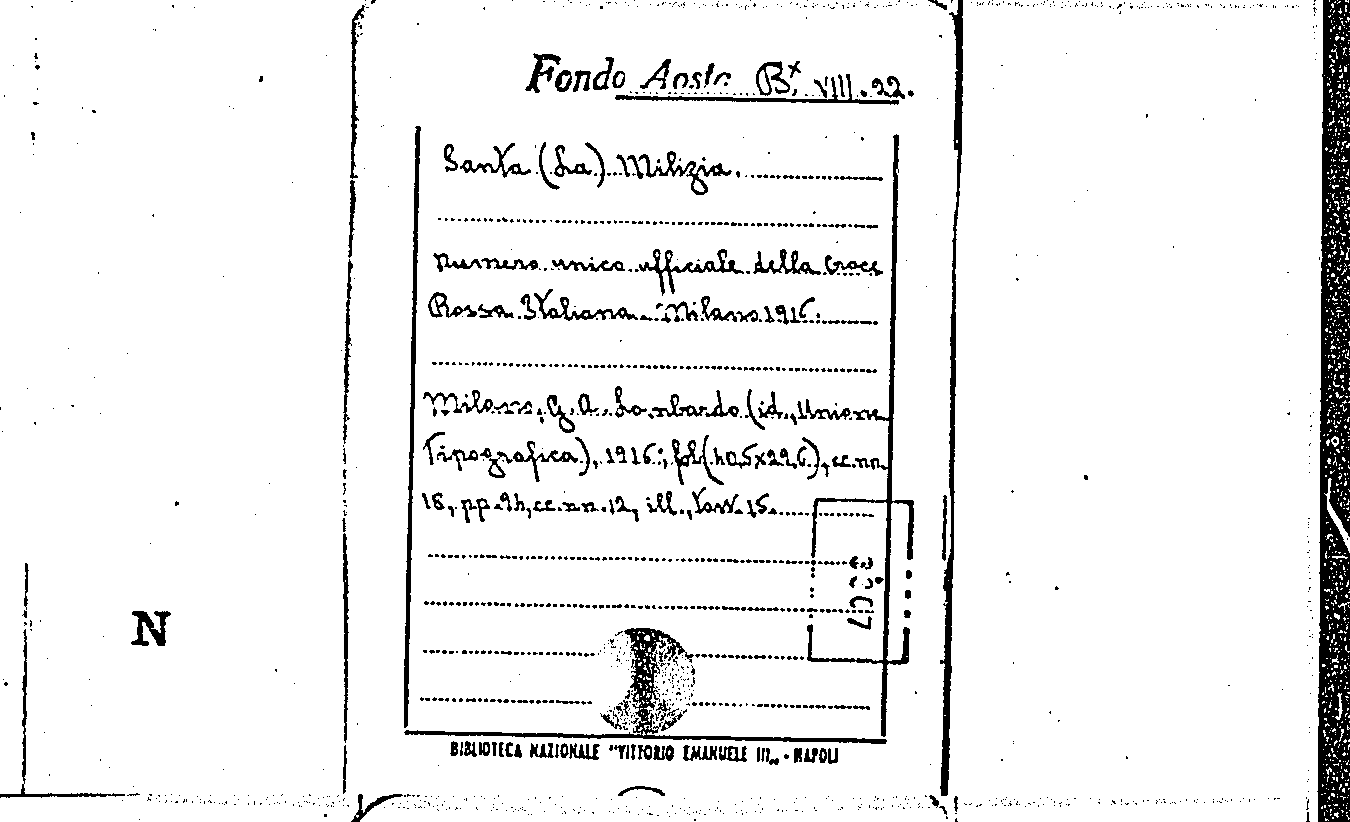 Fondo Aosta B^x. VIII. 22.
Santa (La) Milizia.
Numero unico ufficiale della Croce
Rossa Italiana. Milano 1916.
Milano, G. A. Lombardo (id., Unione
Tipografica), 1916; fol (40,5x29,6), cc.nn.
18, pp. 94, cc.nn. 12, ill., tavv. 15.
N
BIBLIOTECA NAZIONALE "VITTORIO EMANUELE III„ - NAPOLI